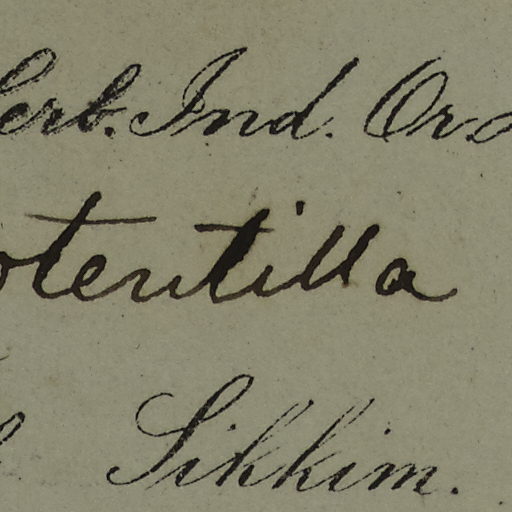 Herb. Ind. Or.
Potentilla
Sikkim.